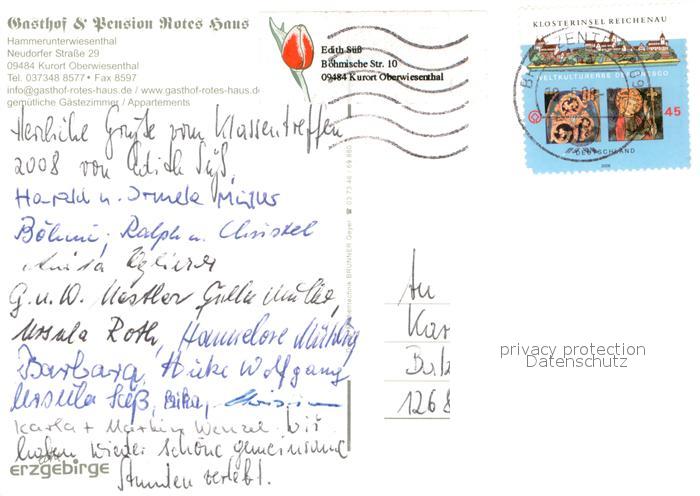 Gasthof & Pension Rotes Haus
Hammerunterwiesenthal
Neudorfer Straße 29
09484 Kurort Oberwiesenthal
Tel. 037348 8577 • Fax 8597
info@gasthof-rotes-haus.de / www.gasthof-rotes-haus.de
gemütliche Gästezimmer / Appartements
Edith Süß
Böhmische Str. 10
09484 Kurort Oberwiesenthal
KLOSTERINSEL REICHENAU
WELTKULTURERBE DER UNESCO
45
DEUTSCHLAND
2008
Herzliche Grüße vom Klassentreffen
2008 von Edith Süß,
Harald u. Ormela Müller
Böhmi, Ralph u. Christel
Anita
G. u. W. Mestler
Ursula Roth, Hannelore
Barbara, Wolfgang
Ursula Seß,
Karla + Martin Wenzel. Wir
haben wieder schöne gemeinsame
Stunden verlebt.
erzgebirge
BRUNNER
An
Kar
1268
privacy protection
Datenschutz